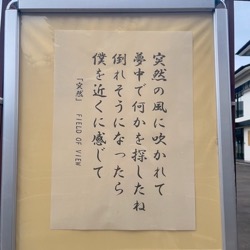 突然の風に吹かれて
夢中で何かを探したね
倒れそうになったら
僕を近くに感じて
『突然』 FIELD OF VIEW